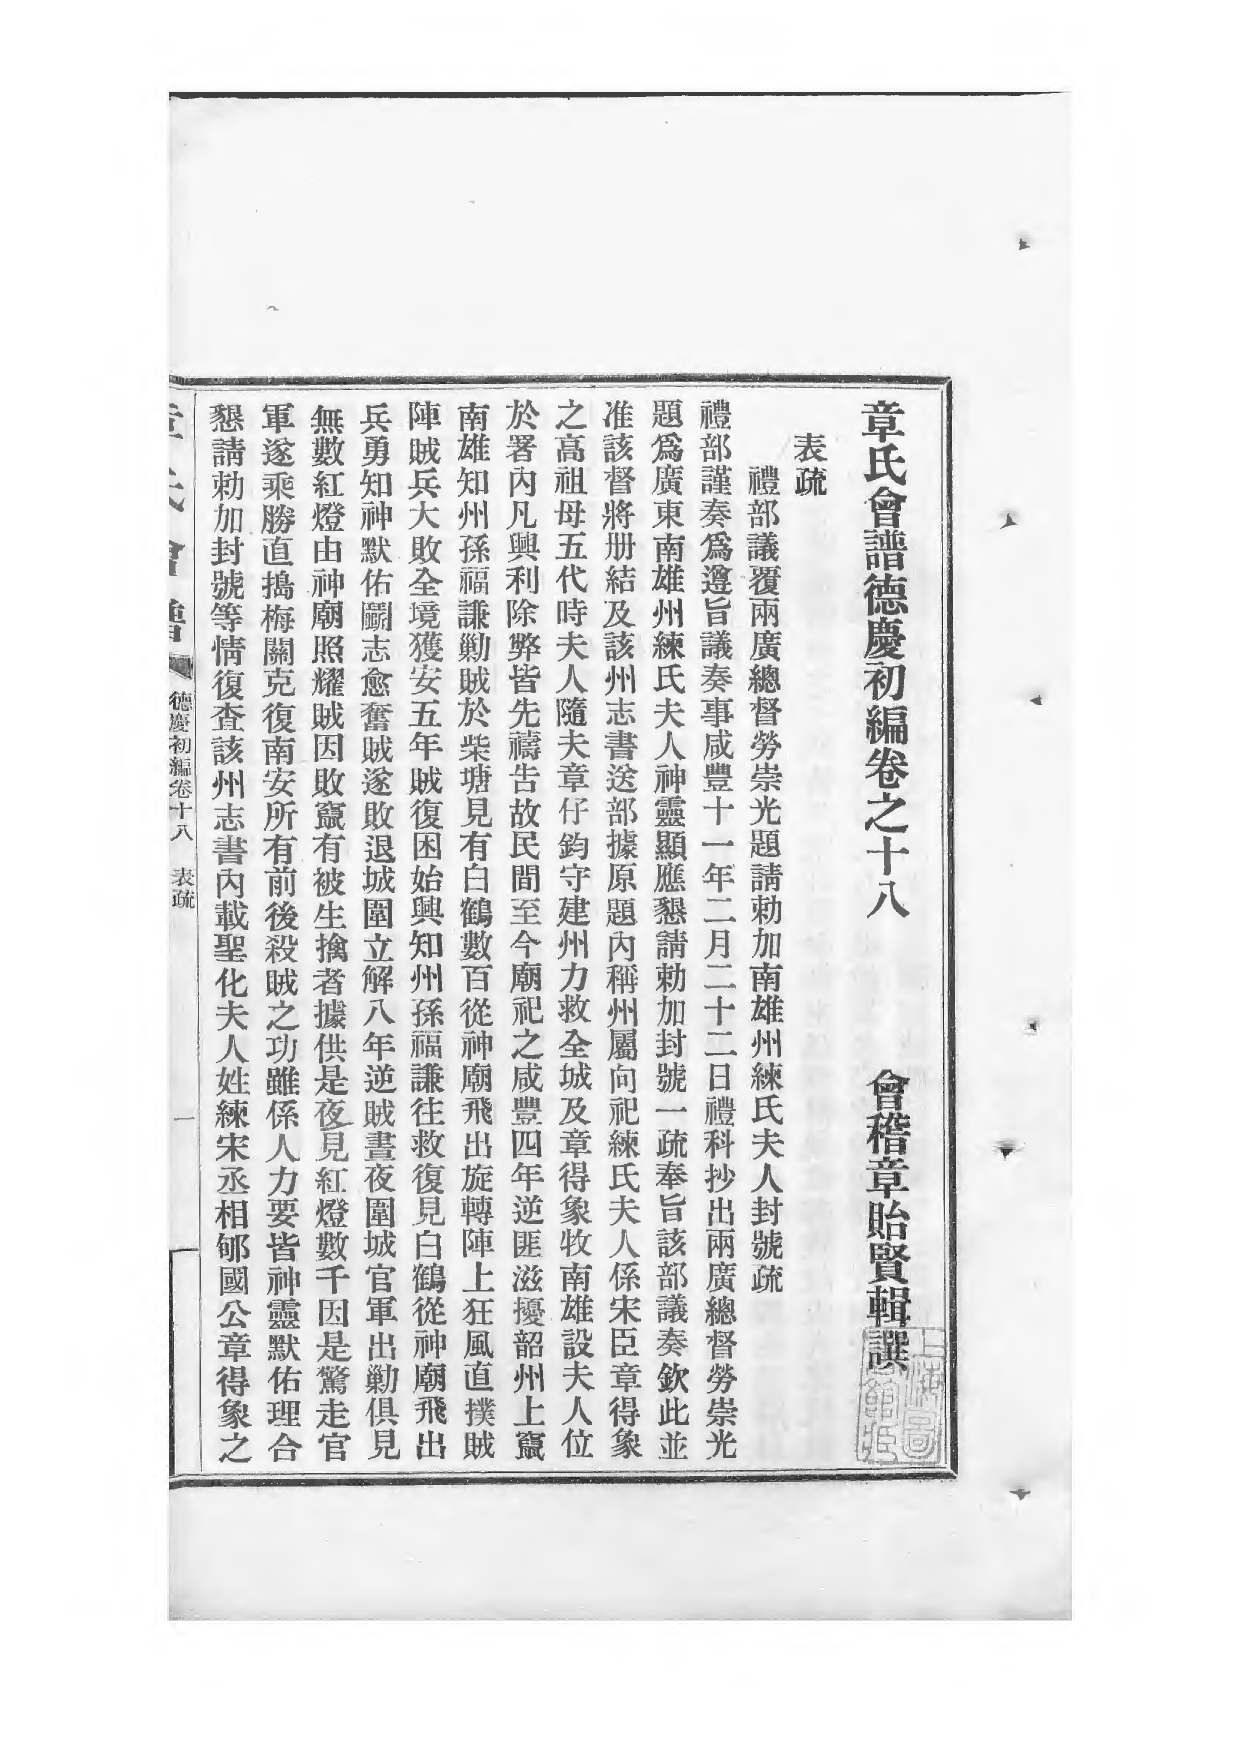 章氏會譜德慶初編卷之十八
會稽章貽賢輯譔
表疏
禮部議覆兩廣總督勞崇光題請勅加南雄州練氏夫人封號疏
禮部謹奏爲遵旨議奏事咸豐十一年二月二十二日禮科抄出兩廣總督勞崇光
題爲廣東南雄州練氏夫人神靈顯應懇請勅加封號一疏奉旨該部議奏欽此並
准該督將册結及該州志書送部據原題內稱州屬向祀練氏夫人係宋臣章得象
之高祖母五代時夫人隨夫章仔鈞守建州力救全城及章得象牧南雄設夫人位
於署內凡興利除弊皆先禱告故民間至今廟祀之咸豐四年逆匪滋擾韶州上竄
南雄知州孫福謙勦賊於柴塘見有白鶴數百從神廟飛出旋轉陣上狂風直撲賊
陣賊兵大敗全境獲安五年賊復困始興知州孫福謙往救復見白鶴從神廟飛出
兵勇知神默佑鬭志愈奮賊遂敗退城圍立解八年逆賊晝夜圍城官軍出勦俱見
無數紅燈由神廟照耀賊因敗竄有被生擒者據供是夜見紅燈數千因是驚走官
軍遂乘勝直搗梅關克復南安所有前後殺賊之功雖係人力要皆神靈默佑理合
懇請勅加封號等情復查該州志書內載聖化夫人姓練宋丞相郇國公章得象之
章氏會譜
德慶初編卷十八
表疏
一